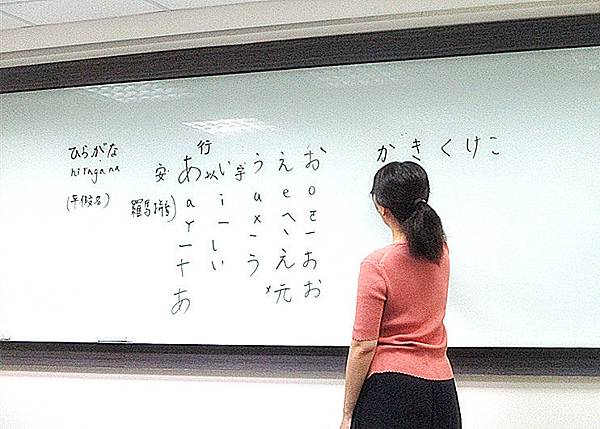 ひらがな
hiragana
(平假名)
行
安 あ 以 い 宇 う え お
羅馬拼音)
a i u e o
ㄚ ㄧ ㄨ ㄟ ㄛ
一 し 、 、 一
十 い う え お
あ x 元 お
か き く け こ